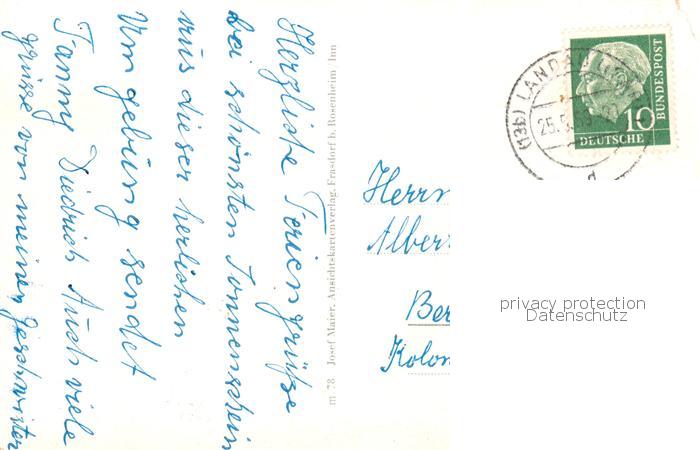 Herzliche Feriengrüße
bei schönsten Sonnenschein
aus dieser herlichen
Umgebung sendet
Fanny Diedrich Auch viele
grüsse von meinen geschwister
m 78 Josef Maier, Ansichtskartenverlag, Frasdorf b. Rosenheim/Inn
(13b) LANDAU
25.
d
10
DEUTSCHE
BUNDESPOST
Herrn
Alber
Ber
Kolon
privacy protection
Datenschutz